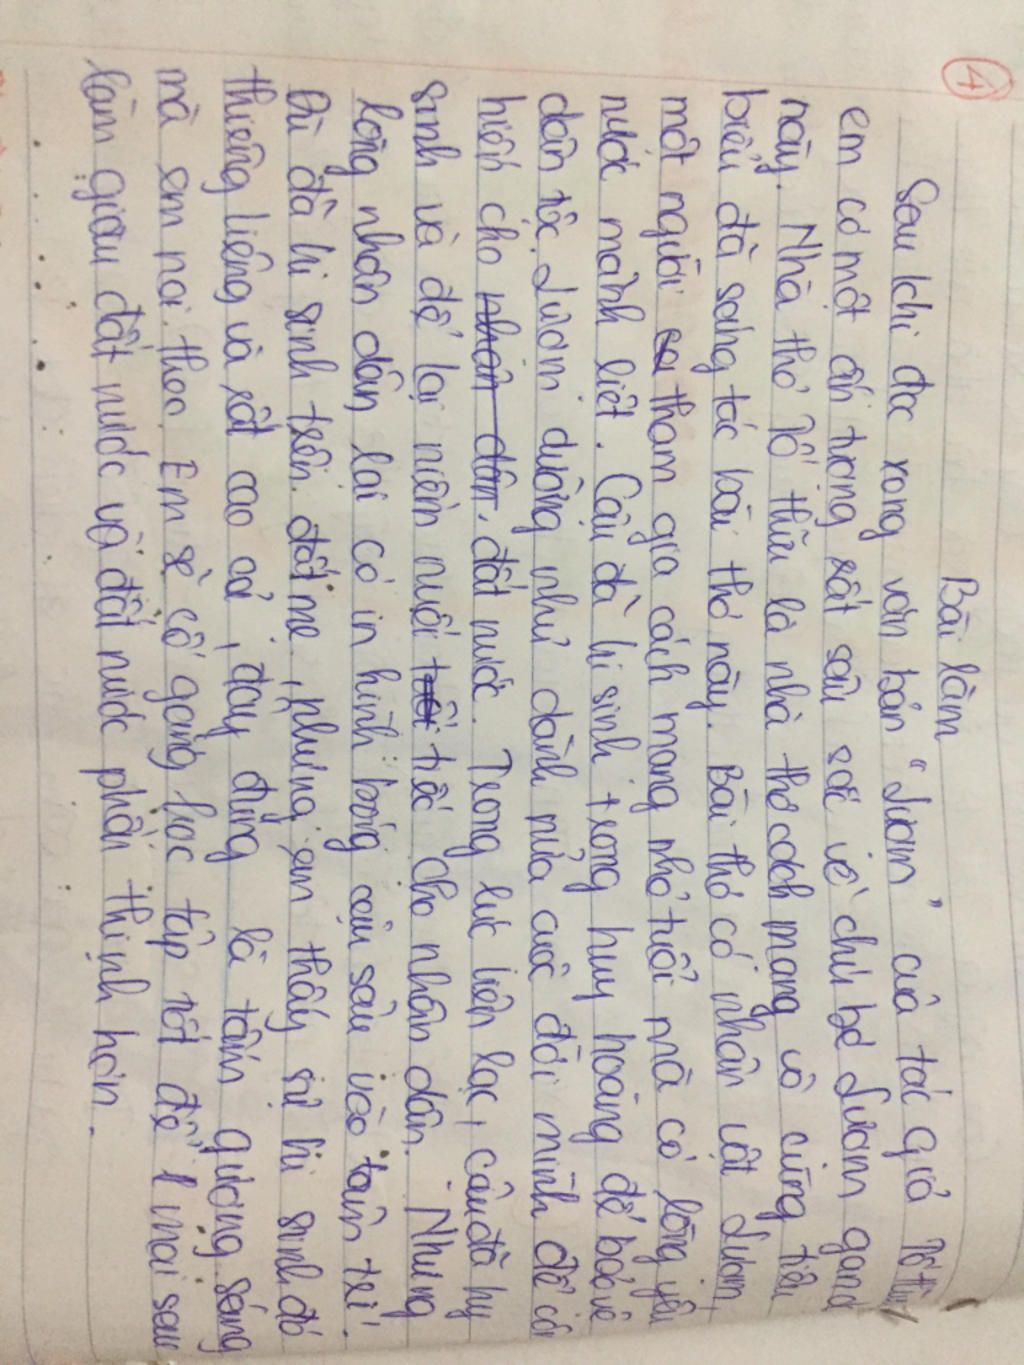 4
Bài làm
Sau khi đọc xong văn bản "Lượm" của tác giả Tố Hữu
em có một ấn tượng rất sâu sắc về chú bé Lượm gan dạ
này. Nhà thơ Tố Hữu là nhà thơ cách mạng vô cùng tiêu
biểu đã sáng tác bài thơ này. Bài thơ có nhân vật Lượm,
một người tham gia cách mạng nhỏ tuổi mà có lòng yêu
nước mãnh liệt. Cậu đã hi sinh trong huy hoàng để bảo vệ
dân tộc. Lượm dường như dành nửa cuộc đời mình để cống
hiến cho nhân dân, đất nước. Trong lúc liên lạc, cậu đã hy
sinh và để lại niềm nuối tiếc cho nhân dân. Nhưng
lòng nhân dân lại có in hình bóng cậu sâu vào tâm trí.
Dù đã hi sinh trên đất mẹ, nhưng em thấy sự hi sinh đó
thiêng liêng và rất cao cả, đây đúng là tấm gương sáng
mà em noi theo. Em sẽ cố gắng học tập tốt để mai sau
làm giàu đất nước và đất nước phồn thịnh hơn.